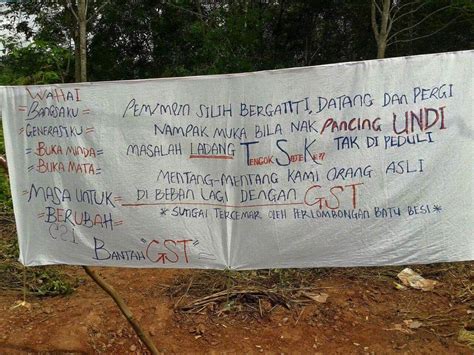 WAHAI
BANGSAKU
GENERASIKU
BUKA MINDA
BUKA MATA
MASA UNTUK
BERUBAH
PEMIMPIN SILIH BERGANTI, DATANG DAN PERGI
NAMPAK MUKA BILA NAK PANCING UNDI
MASALAH LADANG TSK TAK DI PEDULI
MENTANG-MENTANG KAMI ORANG ASLI
DI BEBAN LAGI DENGAN GST
* SUNGAI TERCEMAR OLEH PERLOMBONGAN BATU BESI *
BANTAH "GST"